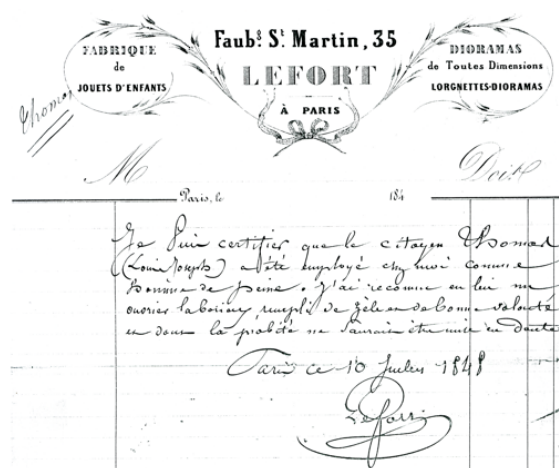 Faubg. St. Martin, 35
FABRIQUE
de
JOUETS D'ENFANTS
LEFORT
À PARIS
DIORAMAS
de Toutes Dimensions
LORGNETTES-DIORAMAS
Thomas
M
Doit
Paris, le 184
Je Suis certifier que le citoyen Thomas
(Louis Joseph) a été employé chez moi comme
homme de peine. J'ai reconnu en lui un
ouvrier laborieux rempli de zèle et de bonne volonté
et dont la probité ne saurait être mise en doute
Paris ce 10 Juillet 1848
Lefort